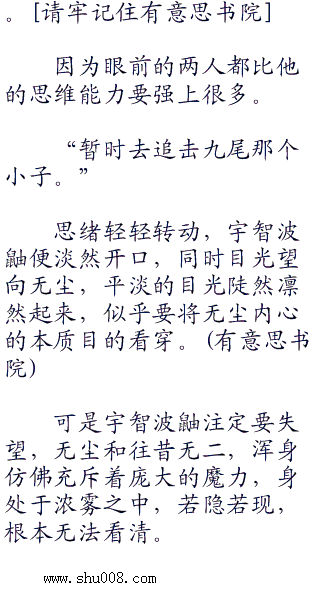 。[请牢记住有意思书院]
因为眼前的两人都比他
的思维能力要强上很多。
“暂时去追击九尾那个
小子。”
思绪轻轻转动，宇智波
鼬便淡然开口，同时目光望
向无尘，平淡的目光陡然凛
然起来，似乎要将无尘内心
的本质目的看穿。(有意思书
院)
可是宇智波鼬注定要失
望，无尘和往昔无二，浑身
仿佛充斥着庞大的魔力，身
处于浓雾之中，若隐若现，
根本无法看清。
www.shu008.com